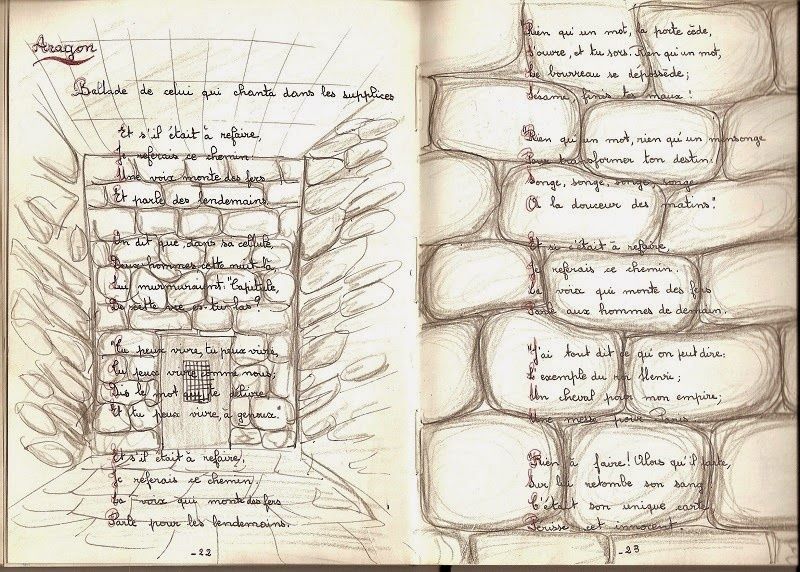 Aragon
Ballade de celui qui chanta dans les supplices
Et s'il était à refaire,
Je referais ce chemin
Une voix monte des fers
Et parle des lendemains.
On dit que, dans sa cellule,
Deux hommes cette nuit-là,
Lui murmuraient: "Capitule,
De cette vie es-tu las?
"Tu peux vivre, tu peux vivre,
Tu peux vivre comme nous;
Dis le mot te délivre
Et tu peux vivre, à genoux."
Et s'il était à refaire,
Je referais ce chemin.
La voix qui monte des fers
Parle pour les lendemains.
- 22
Rien qu'un mot, la porte cède,
S'ouvre, et tu sors. Rien qu'un mot,
Le bourreau se dépossède;
Sésame finis tes maux!
Rien qu'un mot, rien qu'un mensonge
Pour transformer ton destin.
Songe, songe, songe, songe
A la douceur des matins."
Et si c'était à refaire,
Je referais ce chemin.
La voix qui monte des fers
Parle aux hommes de demain.
"J'ai tout dit ce qu'on peut dire:
L'exemple du roi Henri;
Un cheval pour mon empire;
Une messe pour Paris
Rien à faire! Alors qu'il parte,
Sur lui retombe son sang
C'était son unique carte
Périsse cet innocent.
- 23